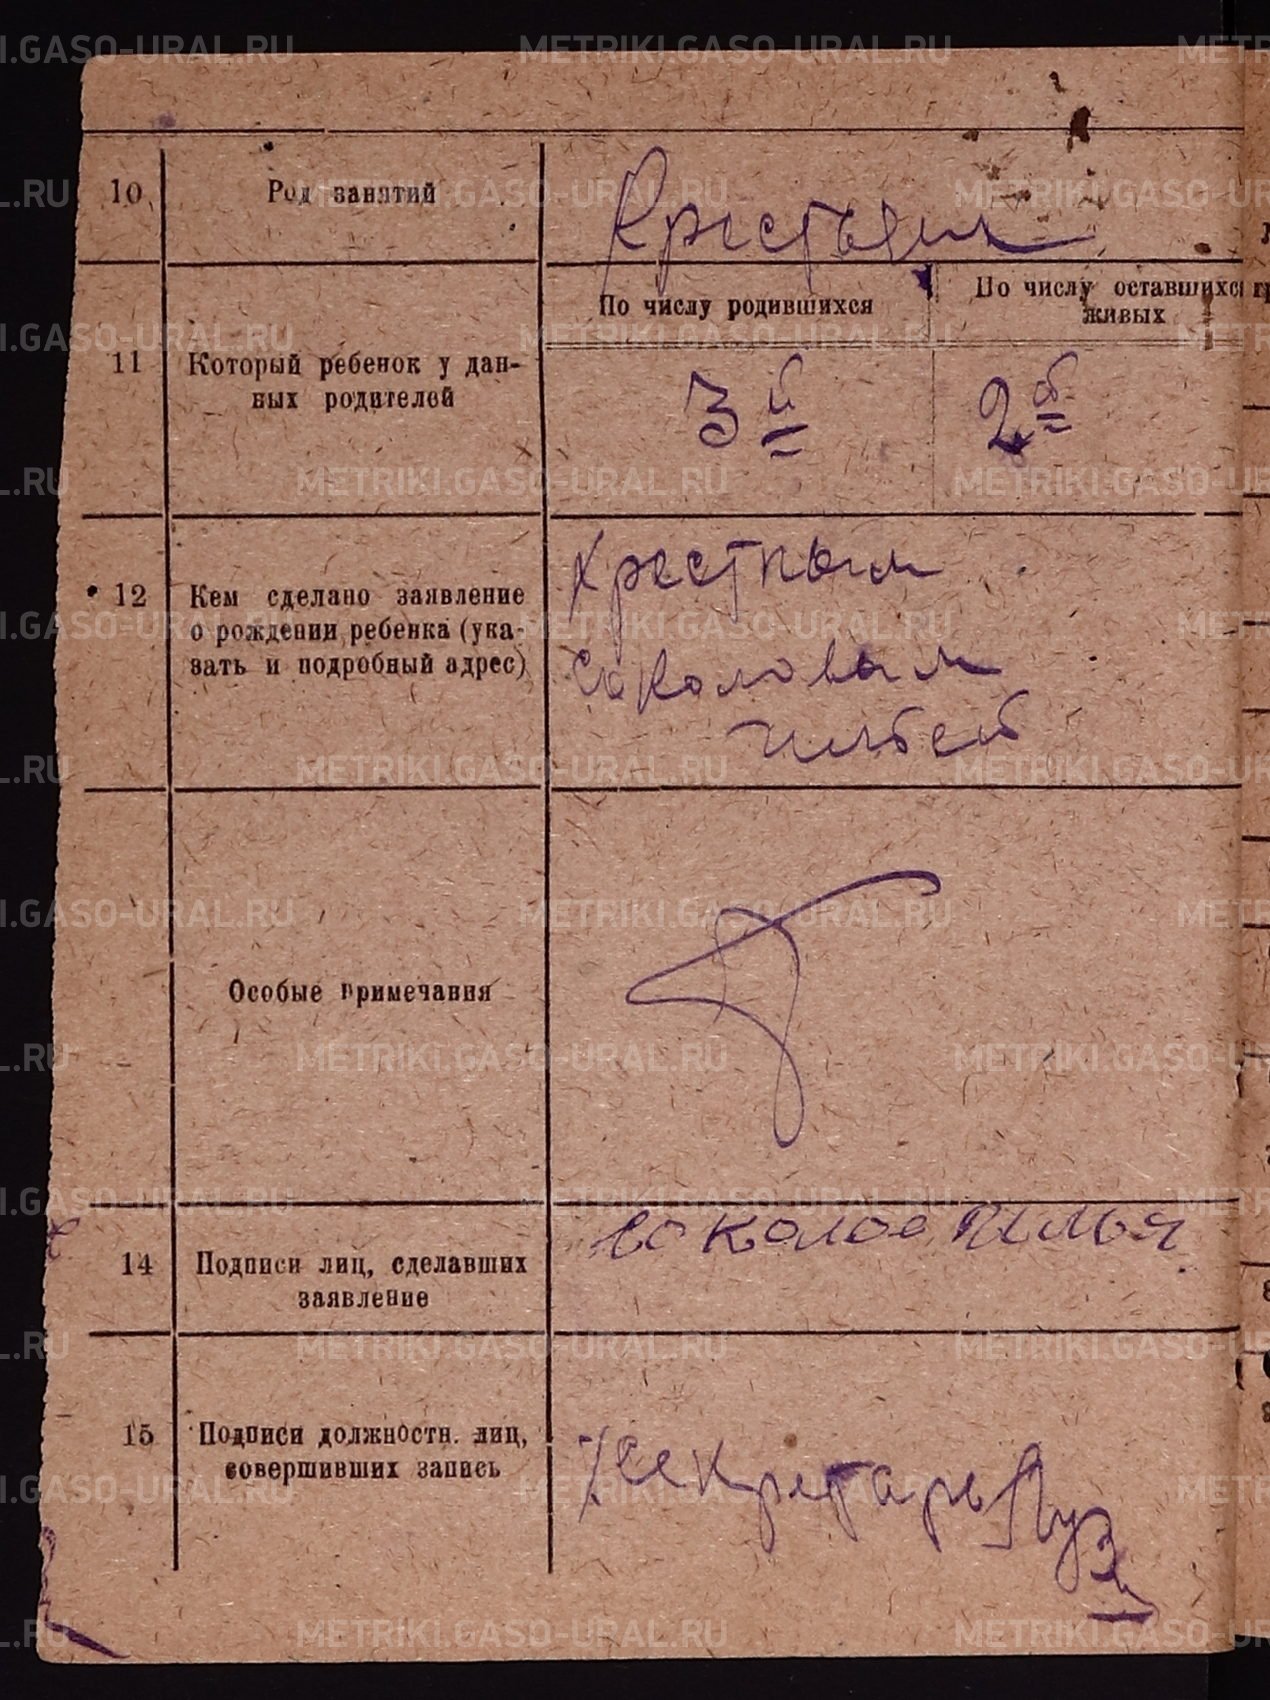 10 Род занятий Крестьян
По числу родившихся По числу оставшихся
живых
11 Который ребенок у дан-
ных родителей
3й 2й
12 Кем сделано заявление
о рождении ребенка (ука-
зать и подробный адрес)
крестным
Соколовым
Ильей
Особые примечания
14 Подписи лиц, сделавших
заявление
Соколов Илья
15 Подписи должностн. лиц,
совершивших запись
Секретарь
METRIKI.GASO-URAL.RU